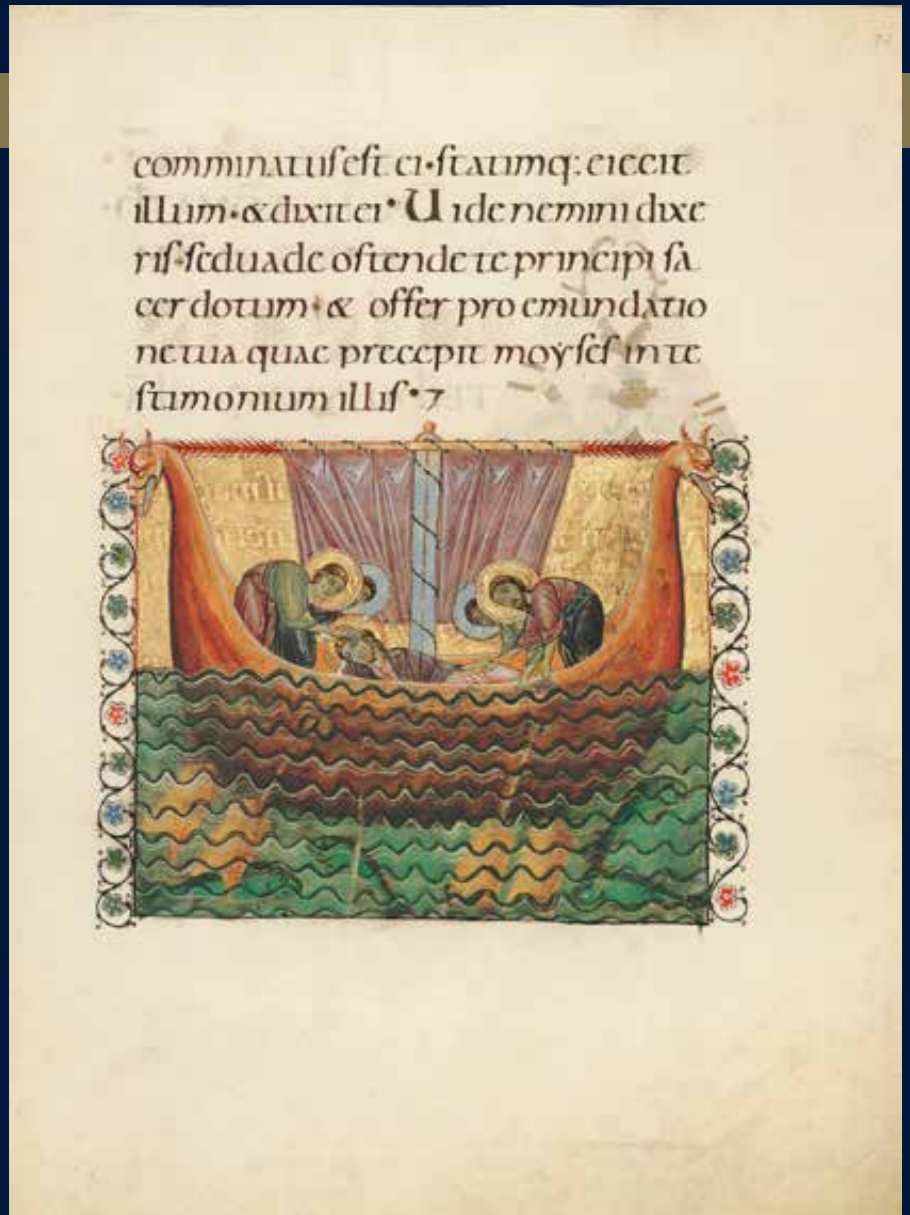 comminatus est ei· statimq: eiecit
illum· & dixit ei· Uide nemini dixe
ris· sed uade ostende te principi sa
cerdotum· & offer pro emundatio
ne tua quae precepit moyses in te
stimonium illis·7